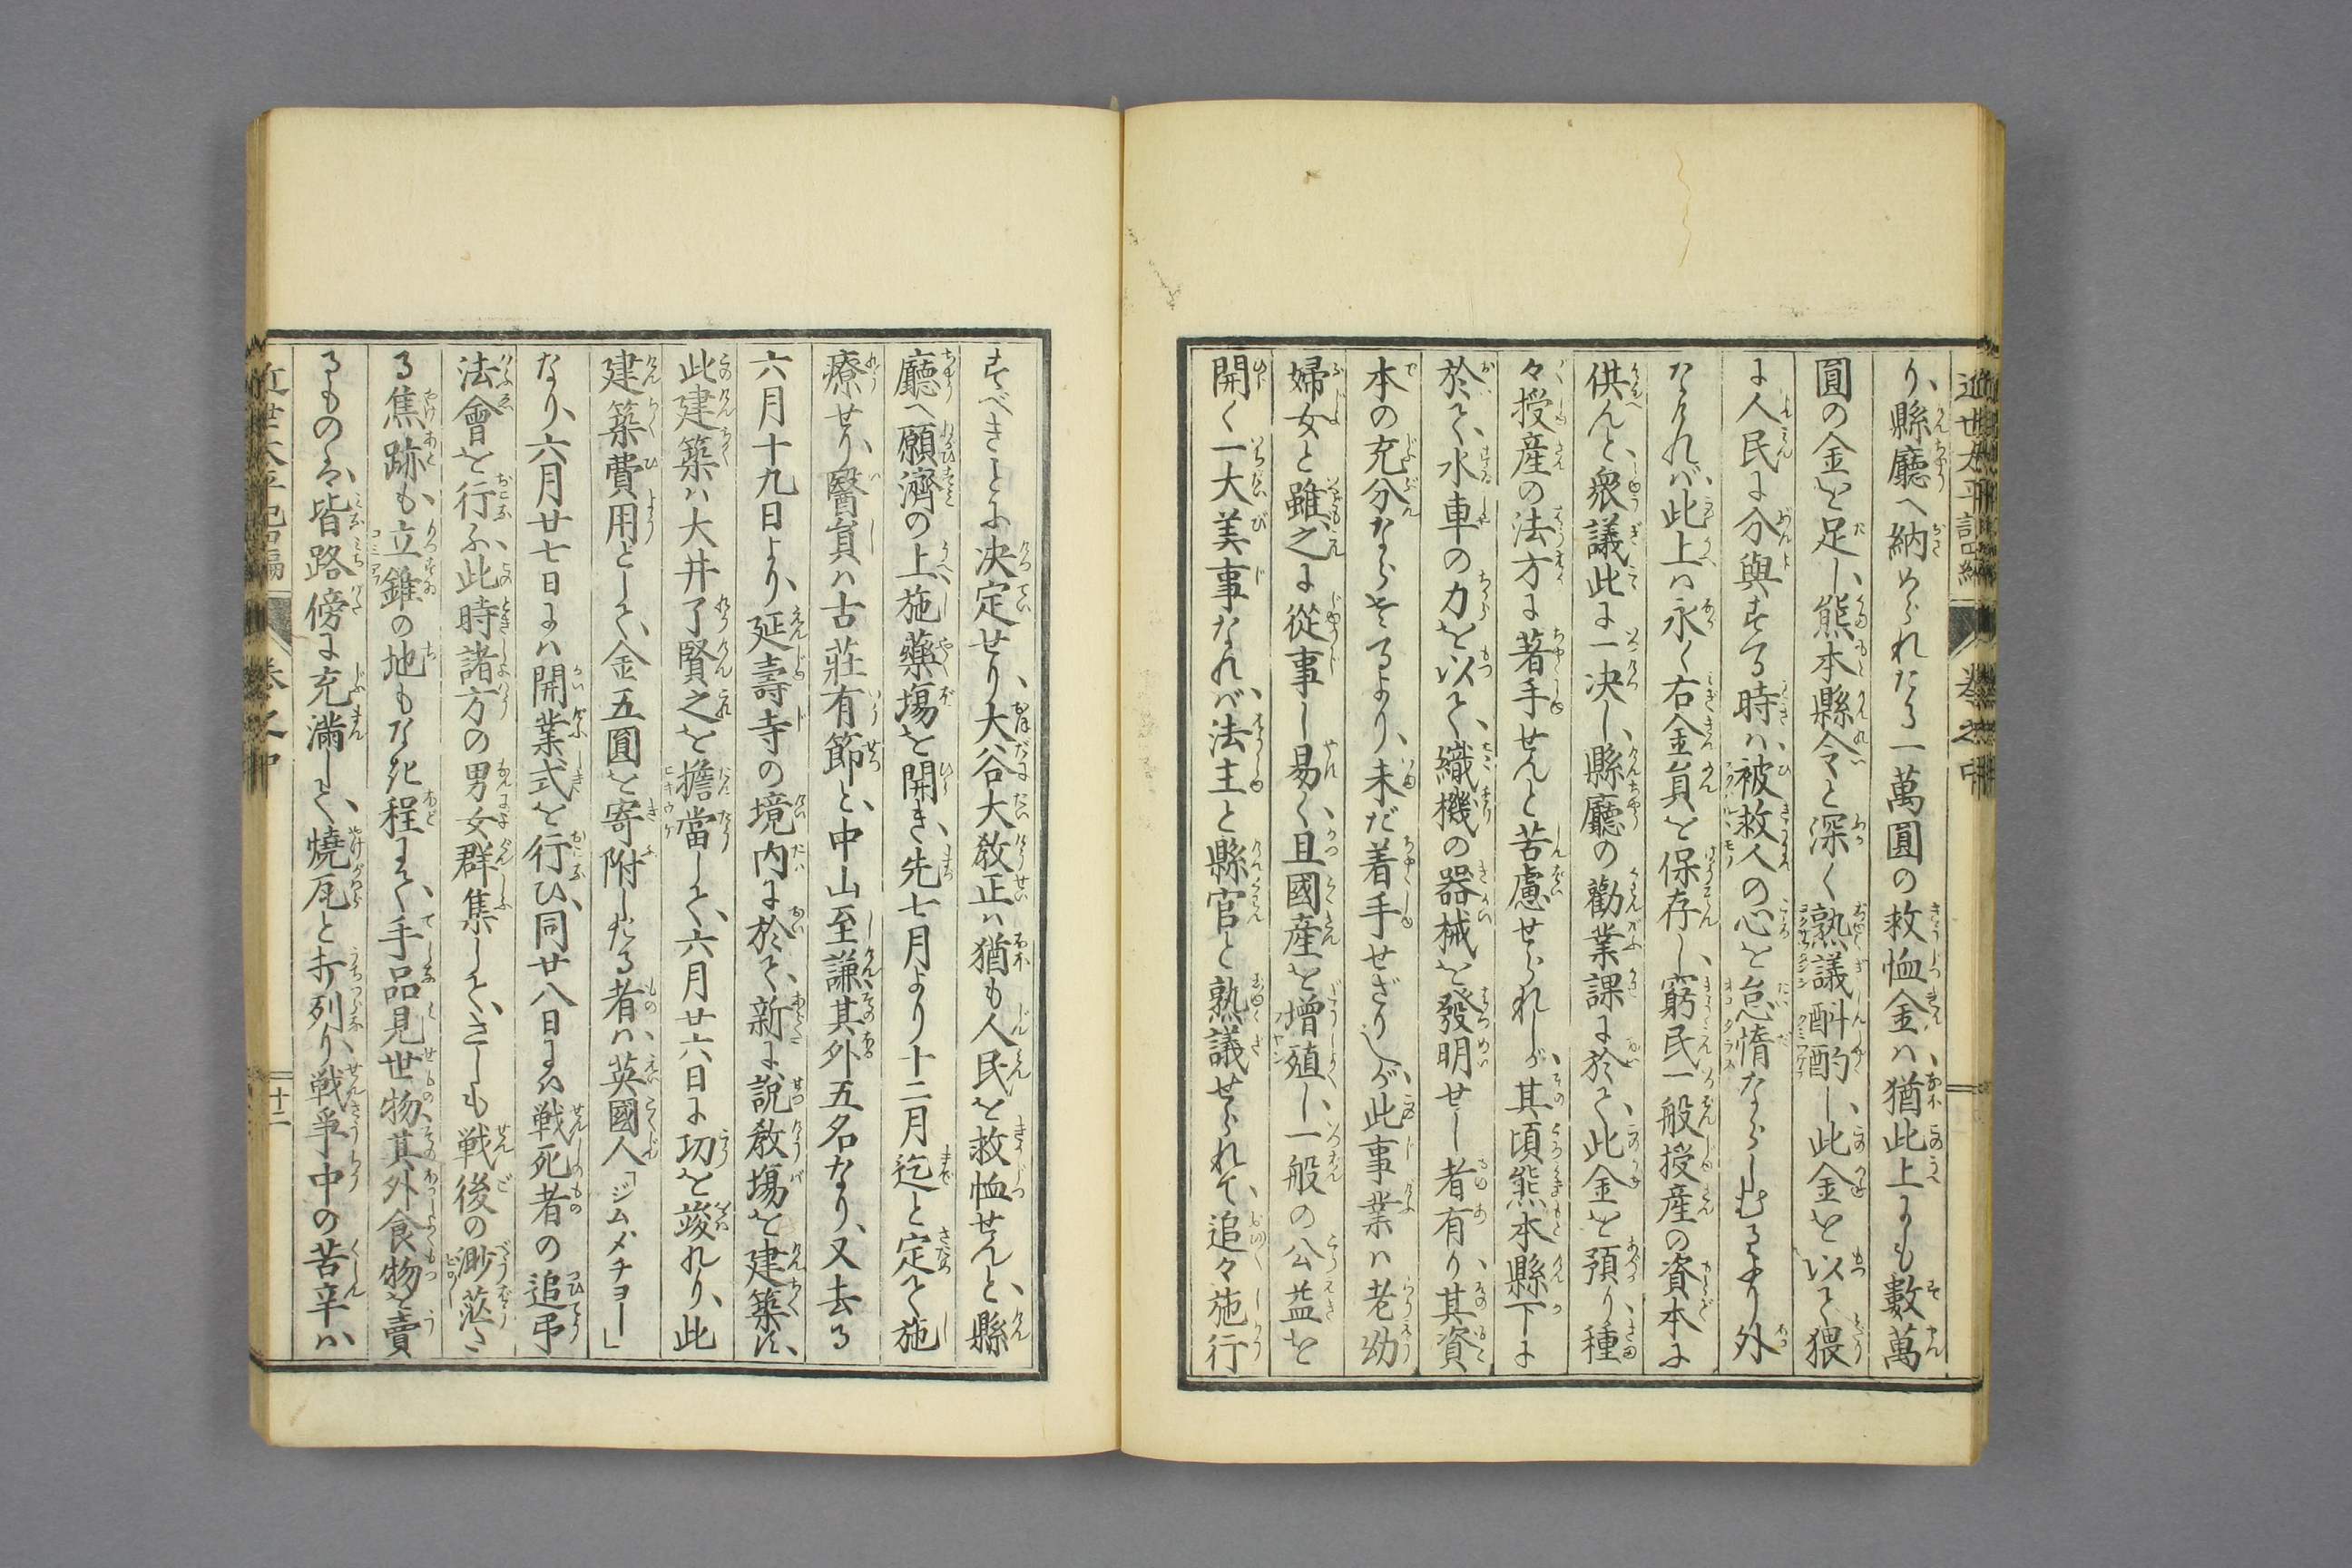 り、縣廳へ納められたる一萬圓の救恤金ハ、猶此上にも數萬
圓の金を足し、熊本縣令と深く熟議斟酌し、此金を以て猥
に人民に分與する時ハ、被救人の心を怠惰ならしむるより外
なけれバ、此上ハ永く右金員を保存し、窮民一般授産の資本に
供んと、衆議此に一決し、縣廳の勸業課に於て、此金を預り、種
々授産の法方に著手せんと苦慮せられしが、其頃熊本縣下に
於て、水車の力を以て、織機の器械を發明せし者有り、其資
本の充分ならざるより、未だ着手せざりしが、此事業ハ老幼
婦女と雖、之に從事し易く、且國産を增殖し、一般の公益を
開く一大美事なれバ、法主と縣官と熟議せられて、追々施行
すべきことに決定せり、大谷大敎正ハ猶も人民を救恤せんと、縣
廳へ願濟の上、施藥塲を開き、先七月より十二月迄と定て施
療せり、醫員ハ古莊有節と、中山至謙其外五名なり、又去る
六月十九日より、延壽寺の境内に於て、新に說敎塲を建築す、
此建築ハ大井了賢之を擔當して、六月廿六日に功を竣れり、此
建築費用として、金五圓を寄附したる者ハ、英國人「ジムメチヨー」
なり、六月廿七日にハ開業式を行ひ、同廿八日にハ戰死者の追弔
法會を行ふ、此時諸方の男女群集して、さしも戰後の渺茫た
る焦跡も、立錐の地もなき程にて、手品見世物、其外食物を賣
るものハ、皆路傍に充滿して、燒瓦と打列り、戰爭中の苦辛ハ
近世太平記四編
卷之中
十二